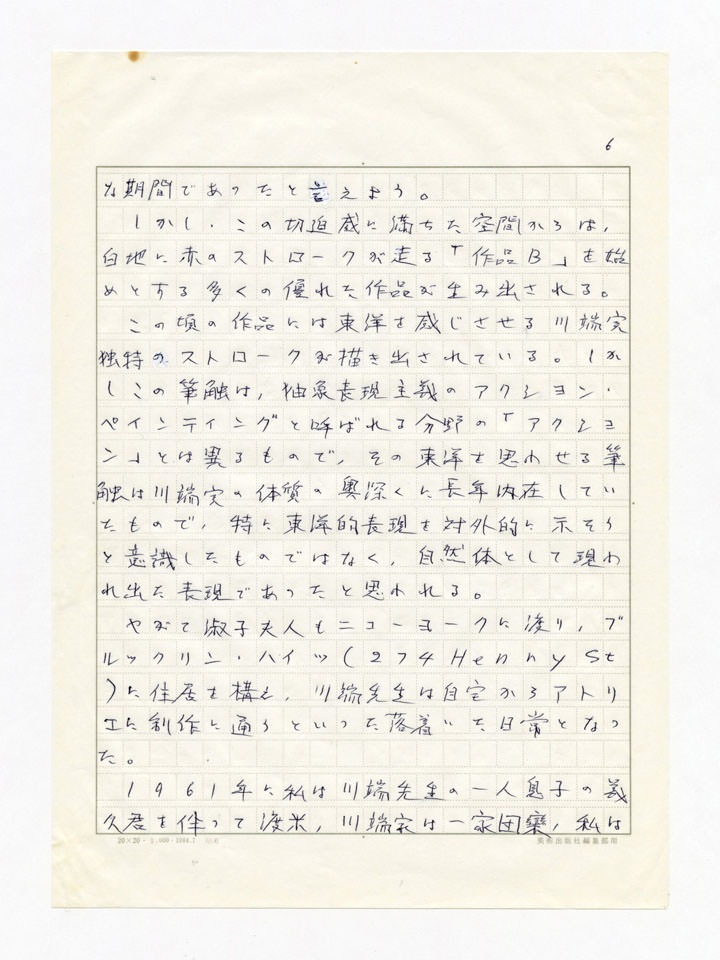 6
な期間であったと言えよう。
しかし、この切迫感に満ちた空間からは、
白地に赤のストロークが走る「作品B」を始
めとする多くの優れた作品が生み出される。
この頃の作品には東洋を感じさせる川端実
独特のストロークが描き出されている。しか
しこの筆触は、抽象表現主義のアクション・
ペインティングと呼ばれる分野の「アクショ
ン」とは異るもので、その東洋を思わせる筆
触は川端実の体質の奥深くに長年内在してい
たもので、特に東洋的表現を対外的に示そう
と意識したものではなく、自然体として現わ
れ出た表現であったと思われる。
やがて淑子夫人もニューヨークに渡り、ブ
ルックリン・ハイツ(274 Henry St
)に住居を構え、川端先生は自宅からアトリ
エに制作に通うといった落着いた日常となっ
た。
1961年に私は川端先生の一人息子の義
久君を伴って渡米、川端家は一家団欒、私は
20×20・5,000・1984.7
美術出版社編集部用